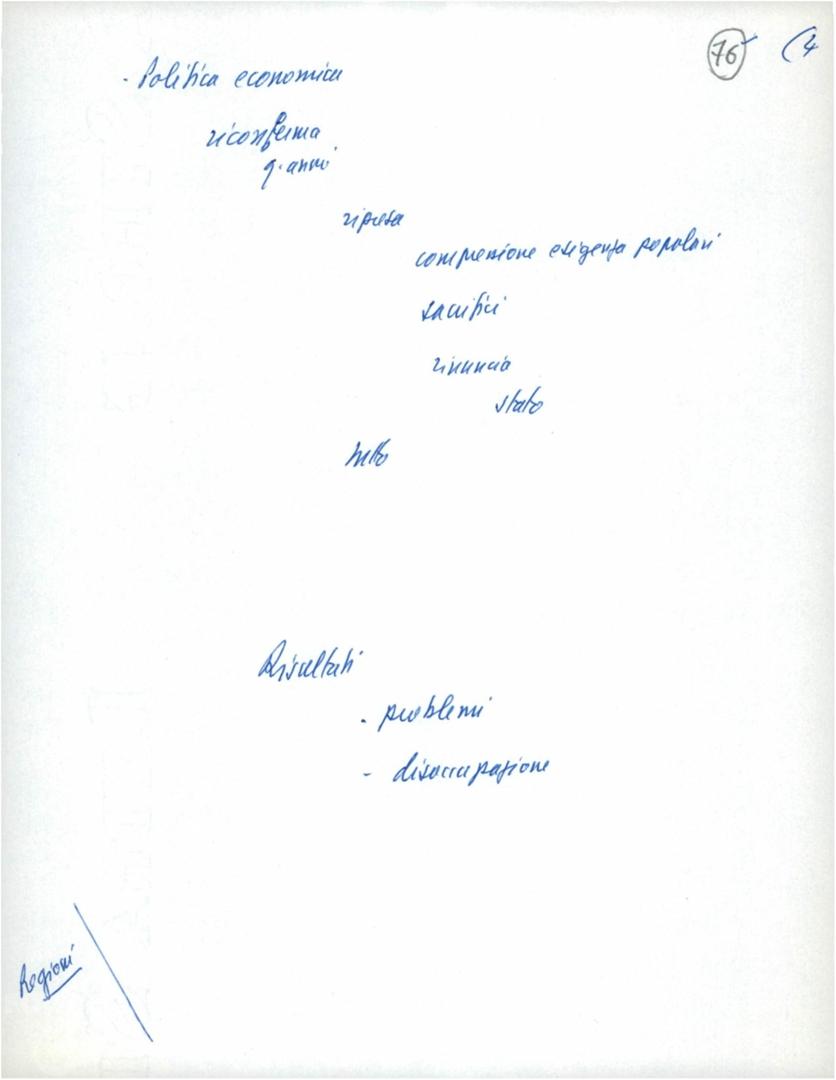 76 (4
- Politica economica
riconferma
q. anni
ripresa
compressione esigenza popolari
sacrifici
rinuncia
stato
Risultati
- problemi
- disoccupazione
Regioni